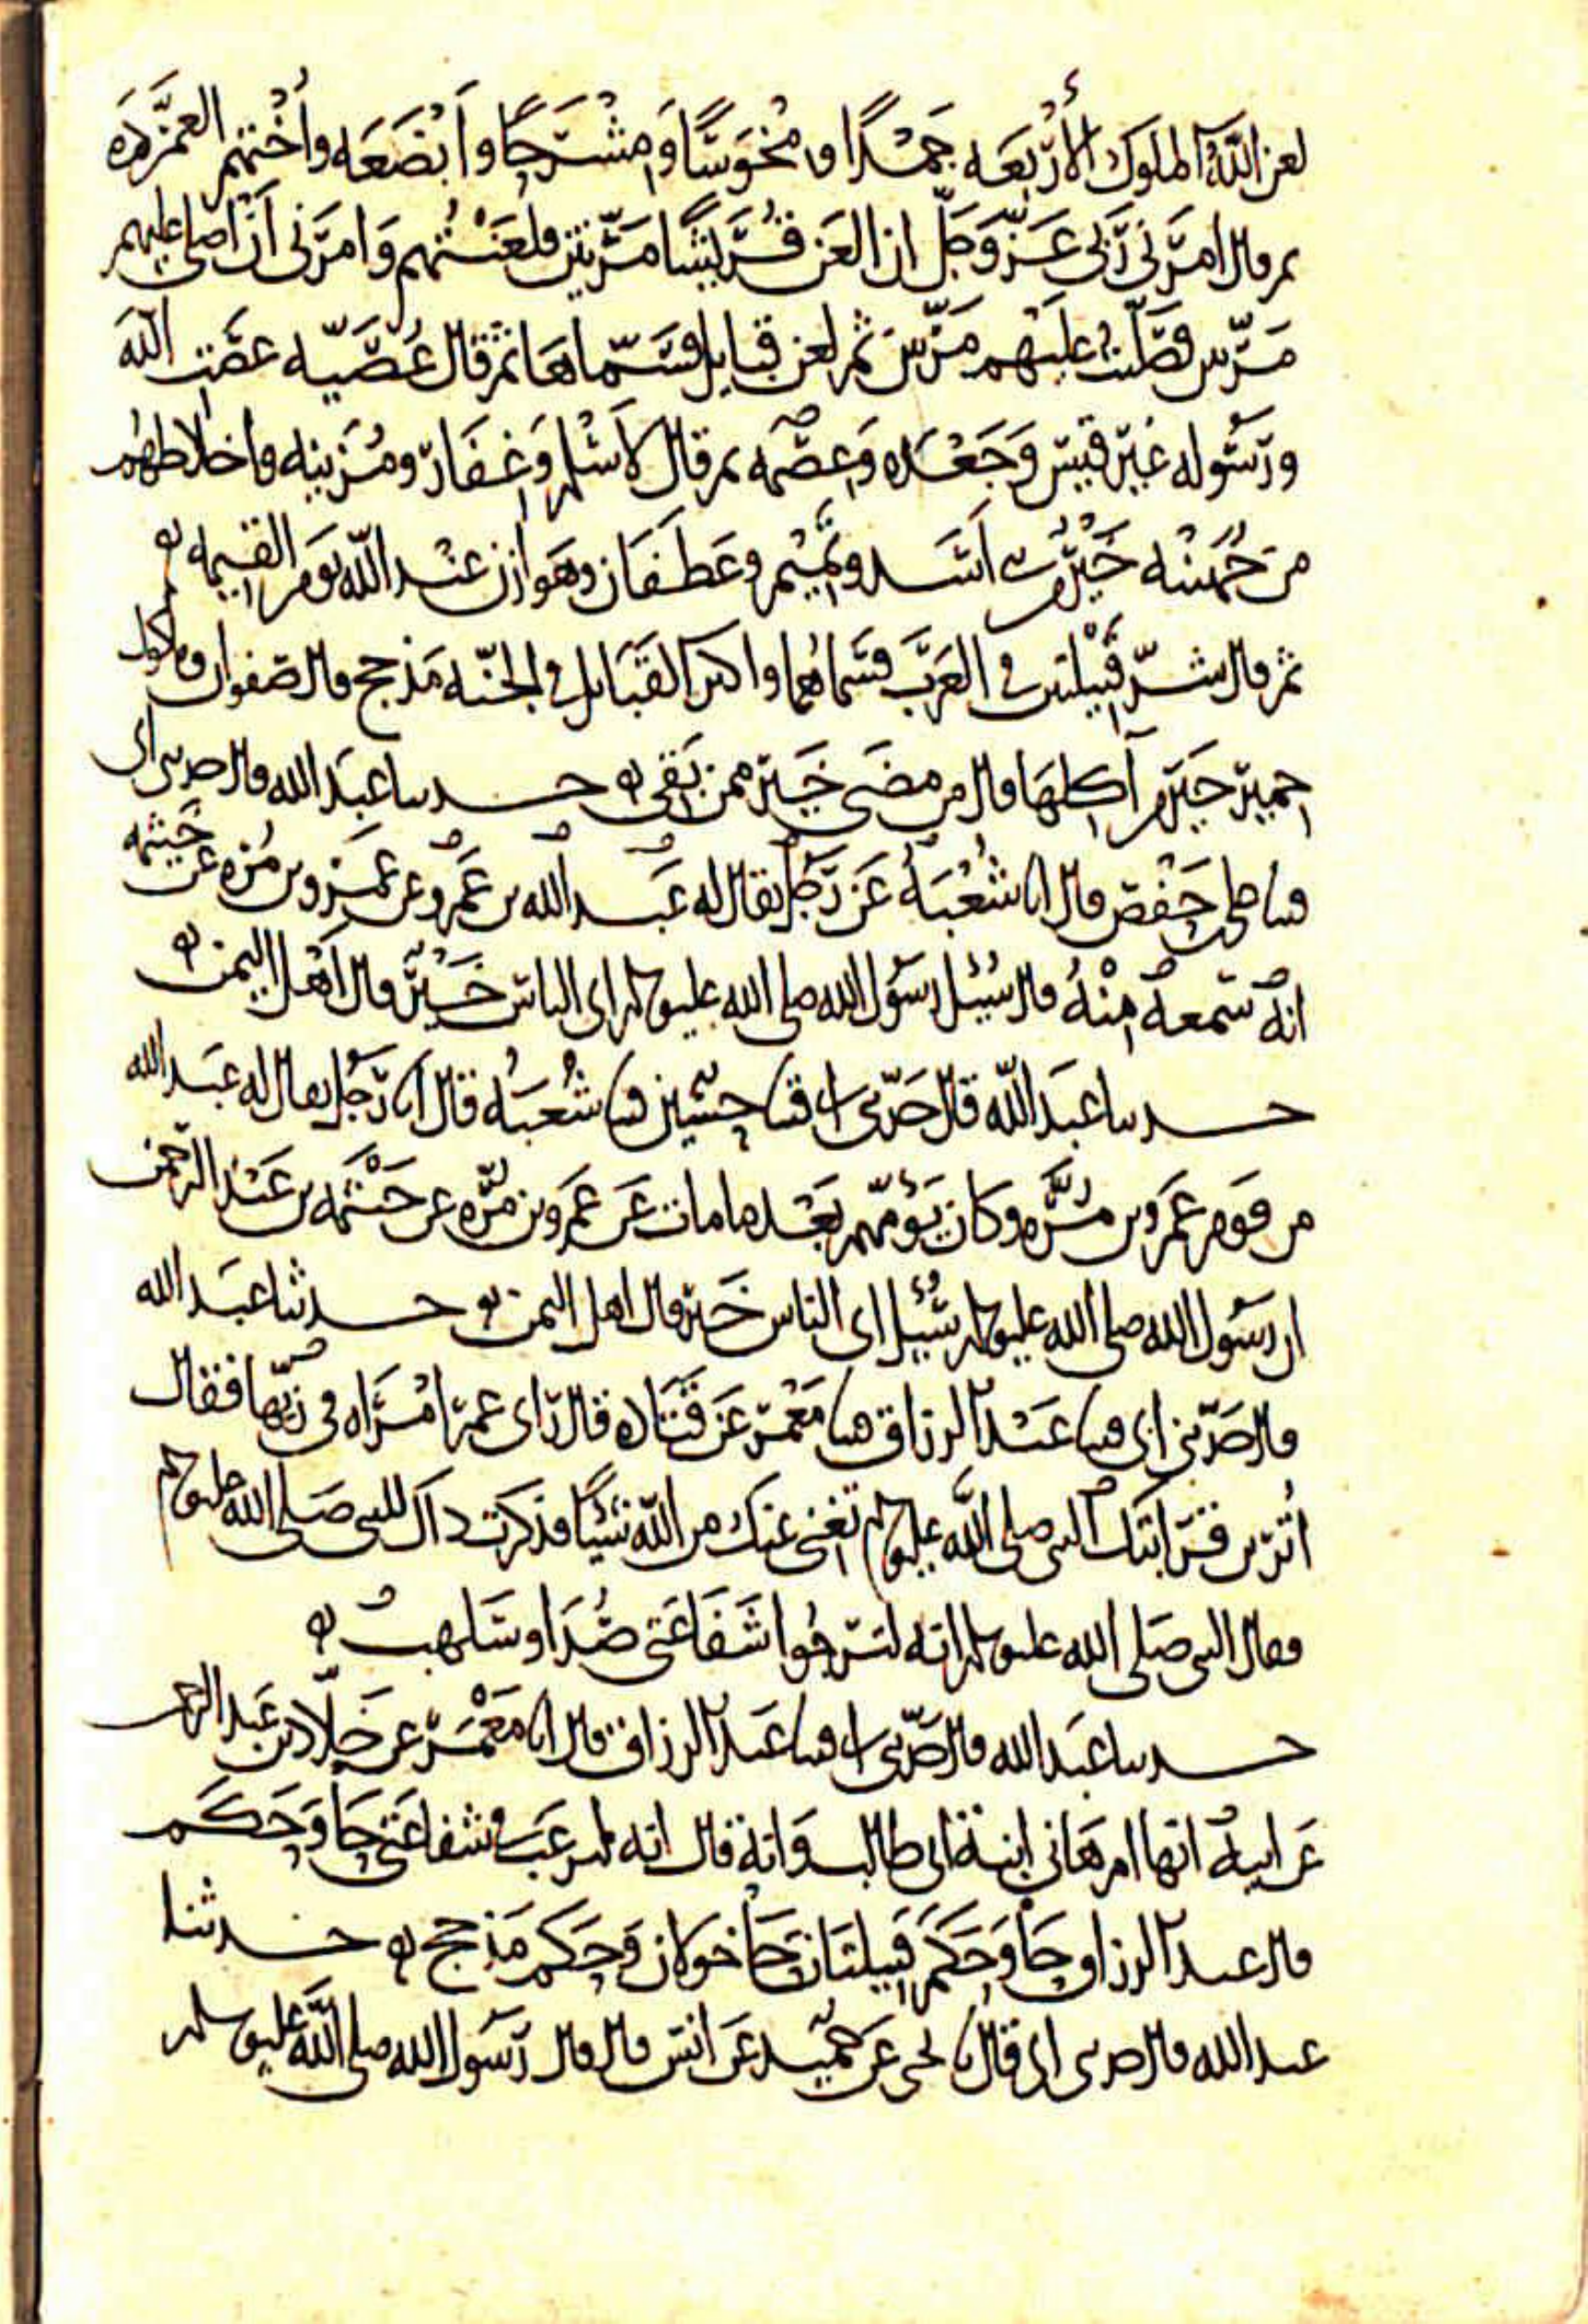 لعن الله الملوك الأربعه جمدا ومخوسا ومشرحا وابضعه واختهم العمرده
ثم قال امرني ربي عز وجل ان العن قريشا مرتين فلعنتهم وامرني ان اصلي عليهم
مرتين فصليت عليهم مرتين ثم لعن قبايل فسماها ثم قال عصيه عصت الله
ورسوله غير قيس وجعده وعصمه ثم قال لاسلم وغفار ومزينه واخلاطهم
من جهينه خير من اسد وتميم وغطفان وهوازن عند الله يوم القيمه
ثم قال شر قبيلتين في العرب فسماهما واكثر القبايل في الجنه مذحج قال صفوان وماكول
حمير خير من آكلها قال من مضى خير ممن بقى حدثنا عبد الله قال حدثني ابي
قثنا علي بن حفص قال انا شعبة عن رجل يقال له عبد الله بن عمرو عن عمرو بن مره عن خيثمه
انه سمعه منه قال سئل رسول الله صلى الله عليه وسلم اي الناس خير قال اهل اليمن
حدثنا عبد الله قال حدثني ابي قثنا حسين قثنا شعبه قال انا رجل يقال له عبد الله
من قوم عمرو بن مره وكان يؤمهم بعد ما مات عن عمرو بن مره عن خيثمه بن عبد الرحمن
ان رسول الله صلى الله عليه وسلم سئل اي الناس خير قال اهل اليمن حدثنا عبد الله
قال حدثني ابي قثنا عبد الرزاق قثنا معمر عن قتاده قال راى عمر امراه في زيها فقال
اترين قرابتك من النبي صلى الله عليه وسلم تغني عنك من الله شيئا فذكرت ذاك للنبي صلى الله عليه وسلم
فقال النبي صلى الله عليه وسلم انه لترجوا شفاعتي صدا وسلهب
حدثنا عبد الله قال حدثني ابي قثنا عبد الرزاق قال انا معمر عن خلاد بن عبد الرحمن
عن ابيه انها ام هاني ابنة ابي طالب وانه قال انه ليرغب في شفاعتي حا وحكم
قال عبد الرزاق حا وحكم قبيلتان حا خولان وحكم مذحج حدثنا
عبد الله قال حدثني ابي قال نا يحيى عن حميد عن انس قال قال رسول الله صلى الله عليه وسلم